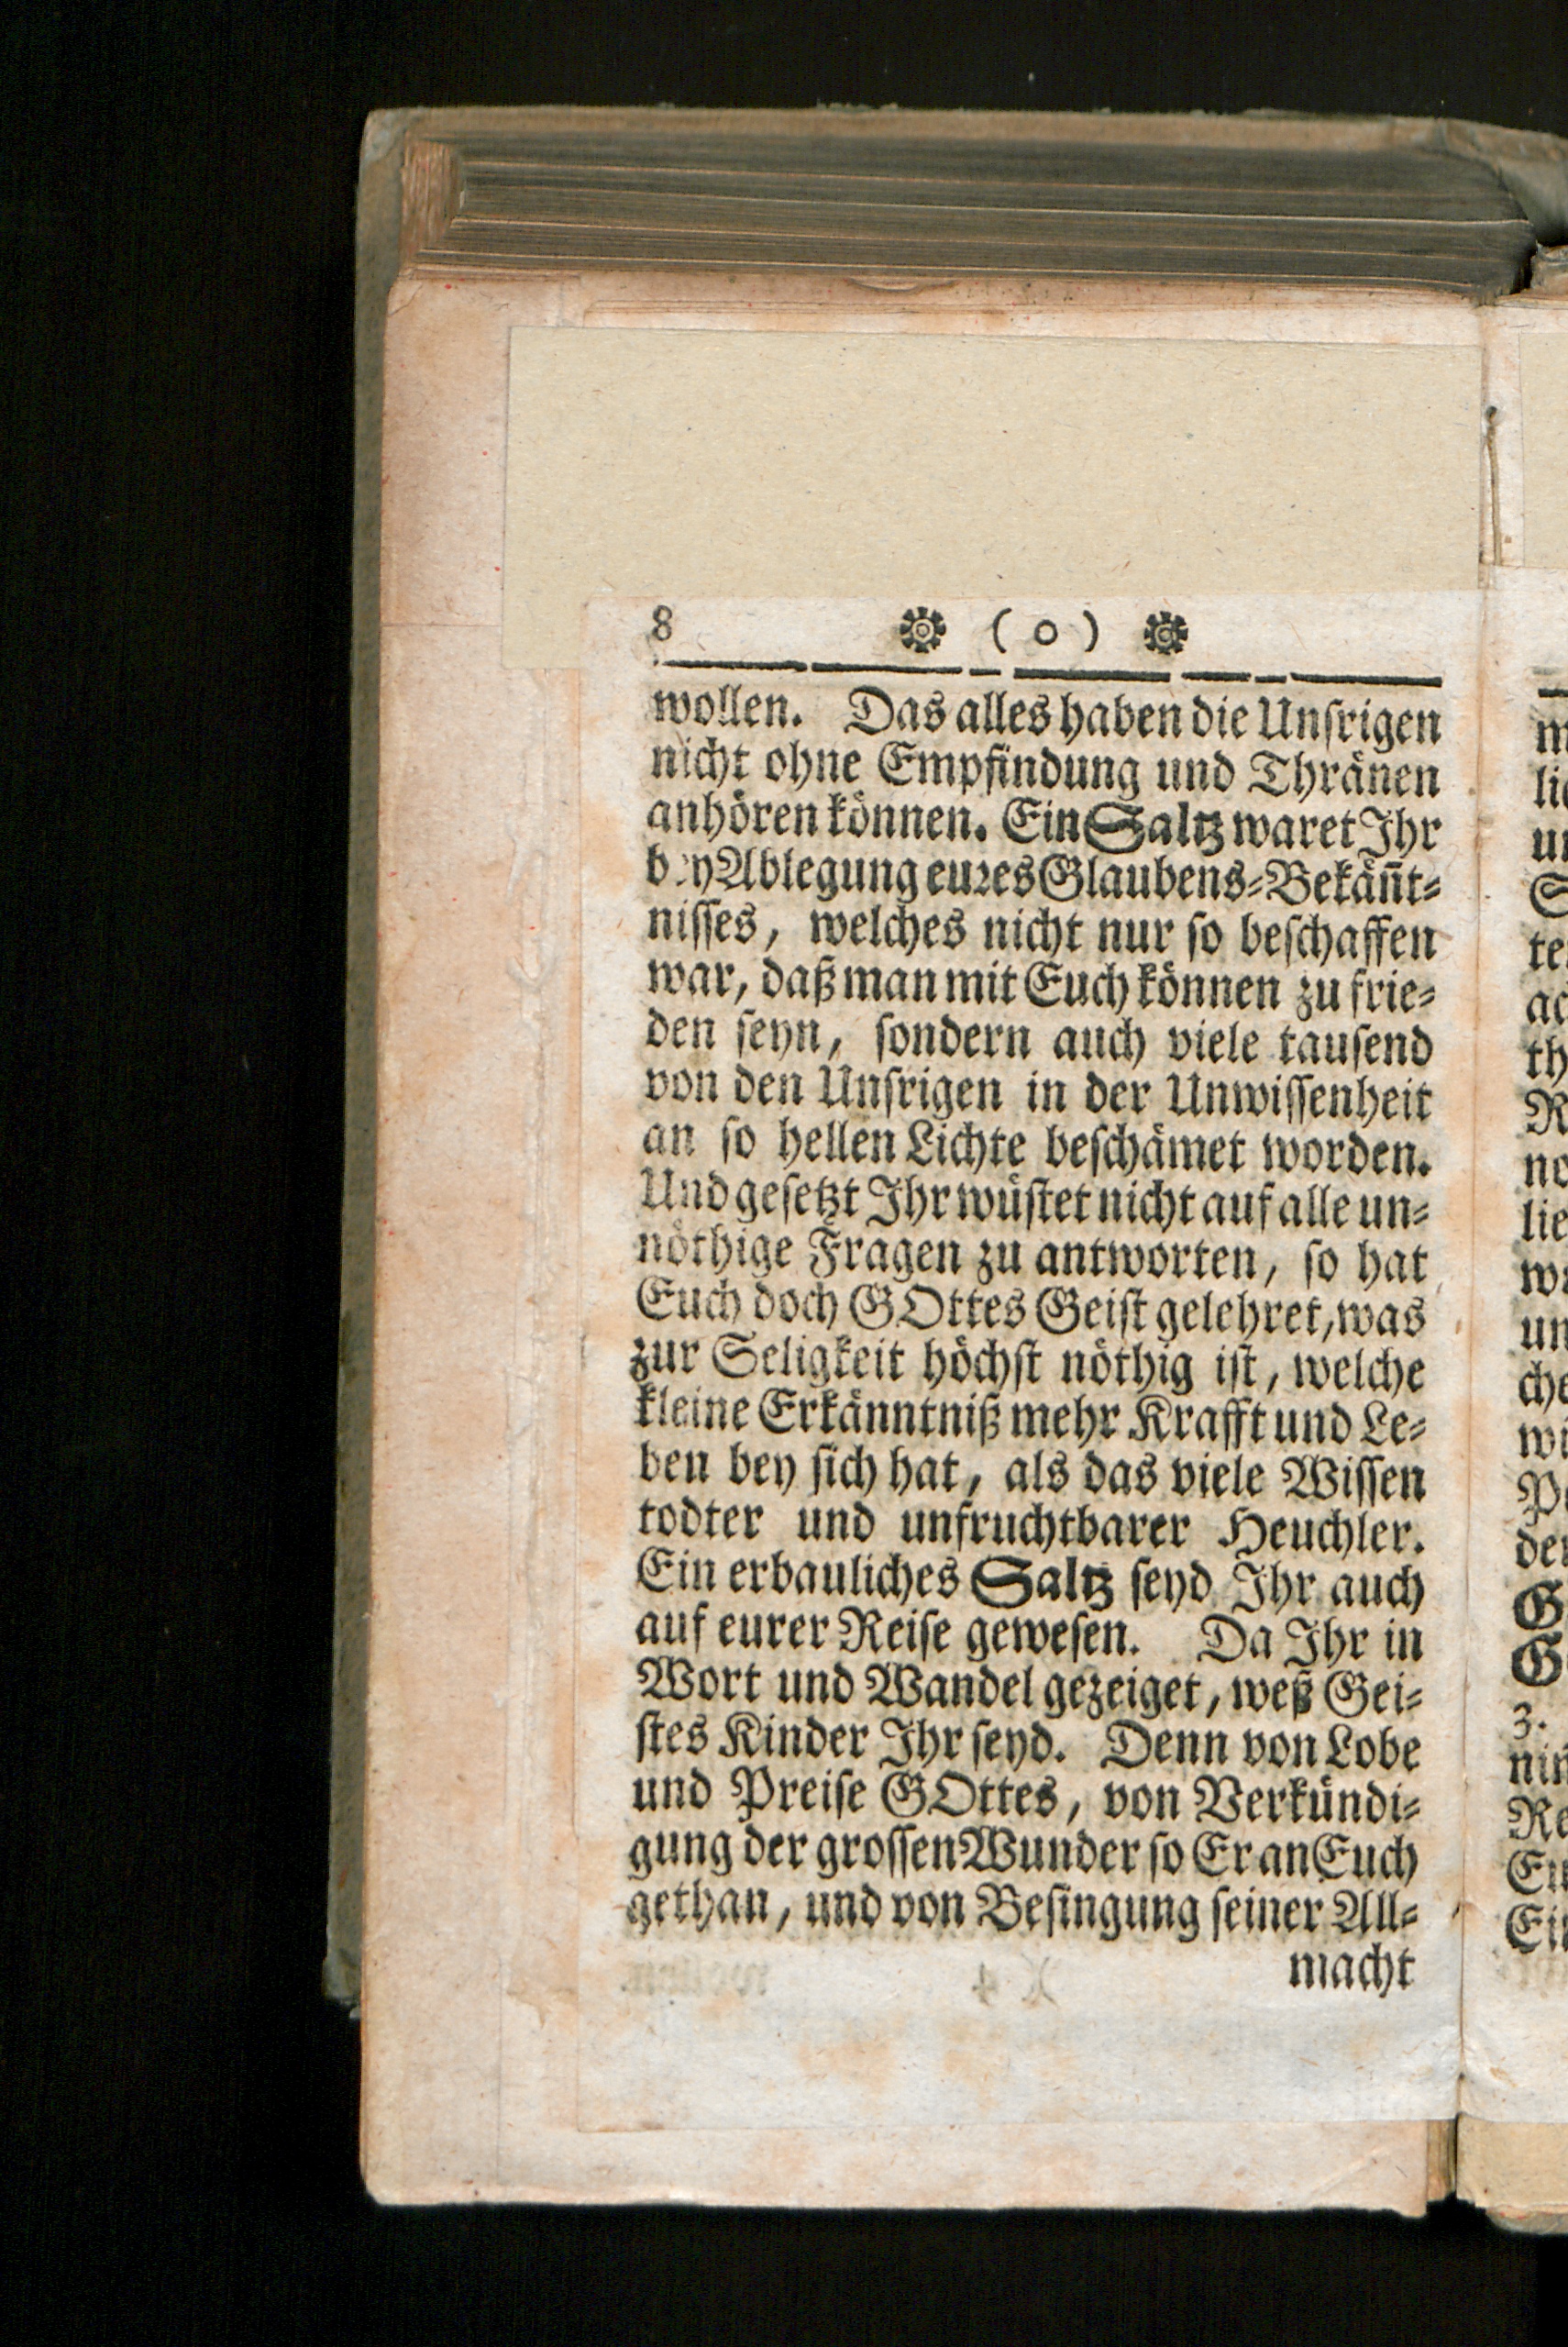 8 ❁ ( o ) ❁
wollen. Das alles haben die Unſrigen
nicht ohne Empfindung und Thränen
anhören können. Ein Saltz waret Ihr
bey Ablegung eures Glaubens⸗Bekän̄t⸗
niſſes, welches nicht nur ſo beſchaffen
war, daß man mit Euch können zu frie⸗
den ſeyn, ſondern auch viele tauſend
von den Unſrigen in der Unwiſſenheit
an ſo hellen Lichte beſchämet worden.
Und geſetzt Ihr wüſtet nicht auf alle un⸗
nöthige Fragen zu antworten, ſo hat
Euch doch GOttes Geiſt gelehret, was
zur Seligkeit höchſt nöthig iſt, welche
kleine Erkänntniß mehr Krafft und Le⸗
ben bey ſich hat, als das viele Wiſſen
todter und unfruchtbarer Heuchler.
Ein erbauliches Saltz ſeyd Ihr auch
auf eurer Reiſe geweſen. Da Ihr in
Wort und Wandel gezeiget, weß Gei⸗
ſtes Kinder Ihr ſeyd. Denn von Lobe
und Preiſe GOttes, von Verkündi⸗
gung der groſſen Wunder ſo Er an Euch
gethan, und von Beſingung ſeiner All⸗
macht